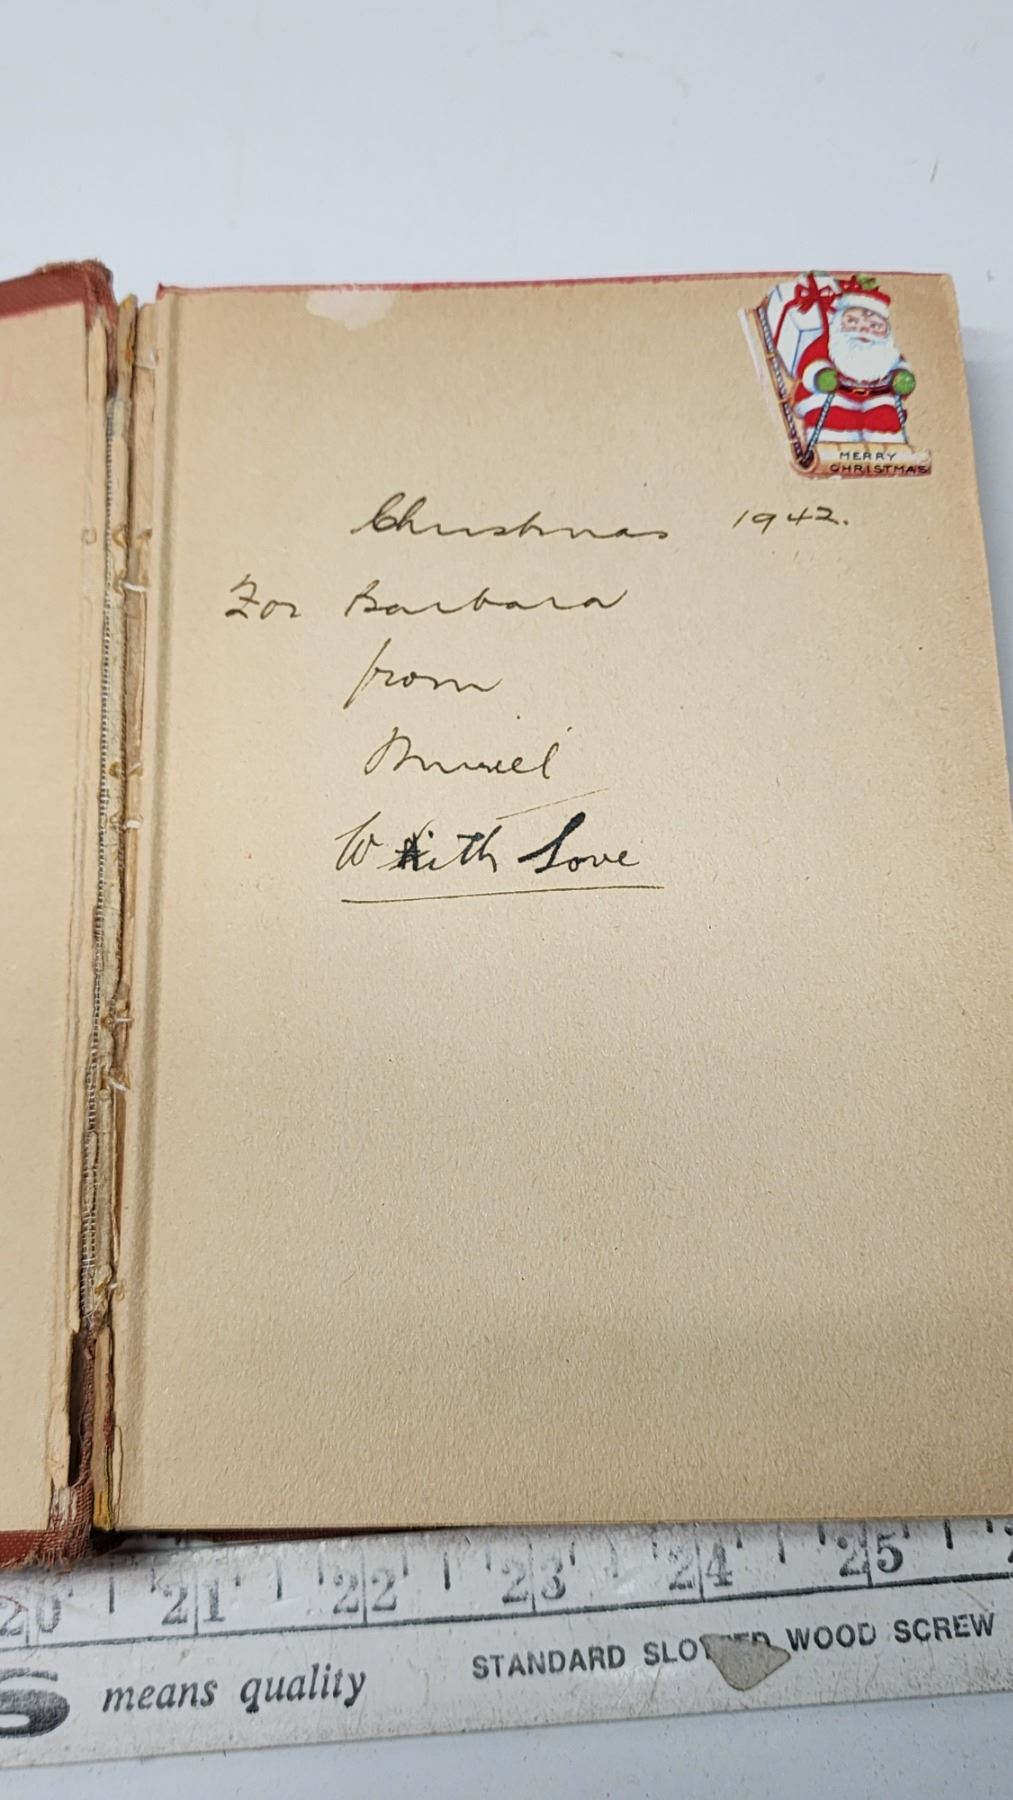 MERRY
CHRISTMAS
Christmas 1942.
For Barbara
from
Muriel
With Love
20 21 22 23 24 25
S means quality
STANDARD WOOD SCREW